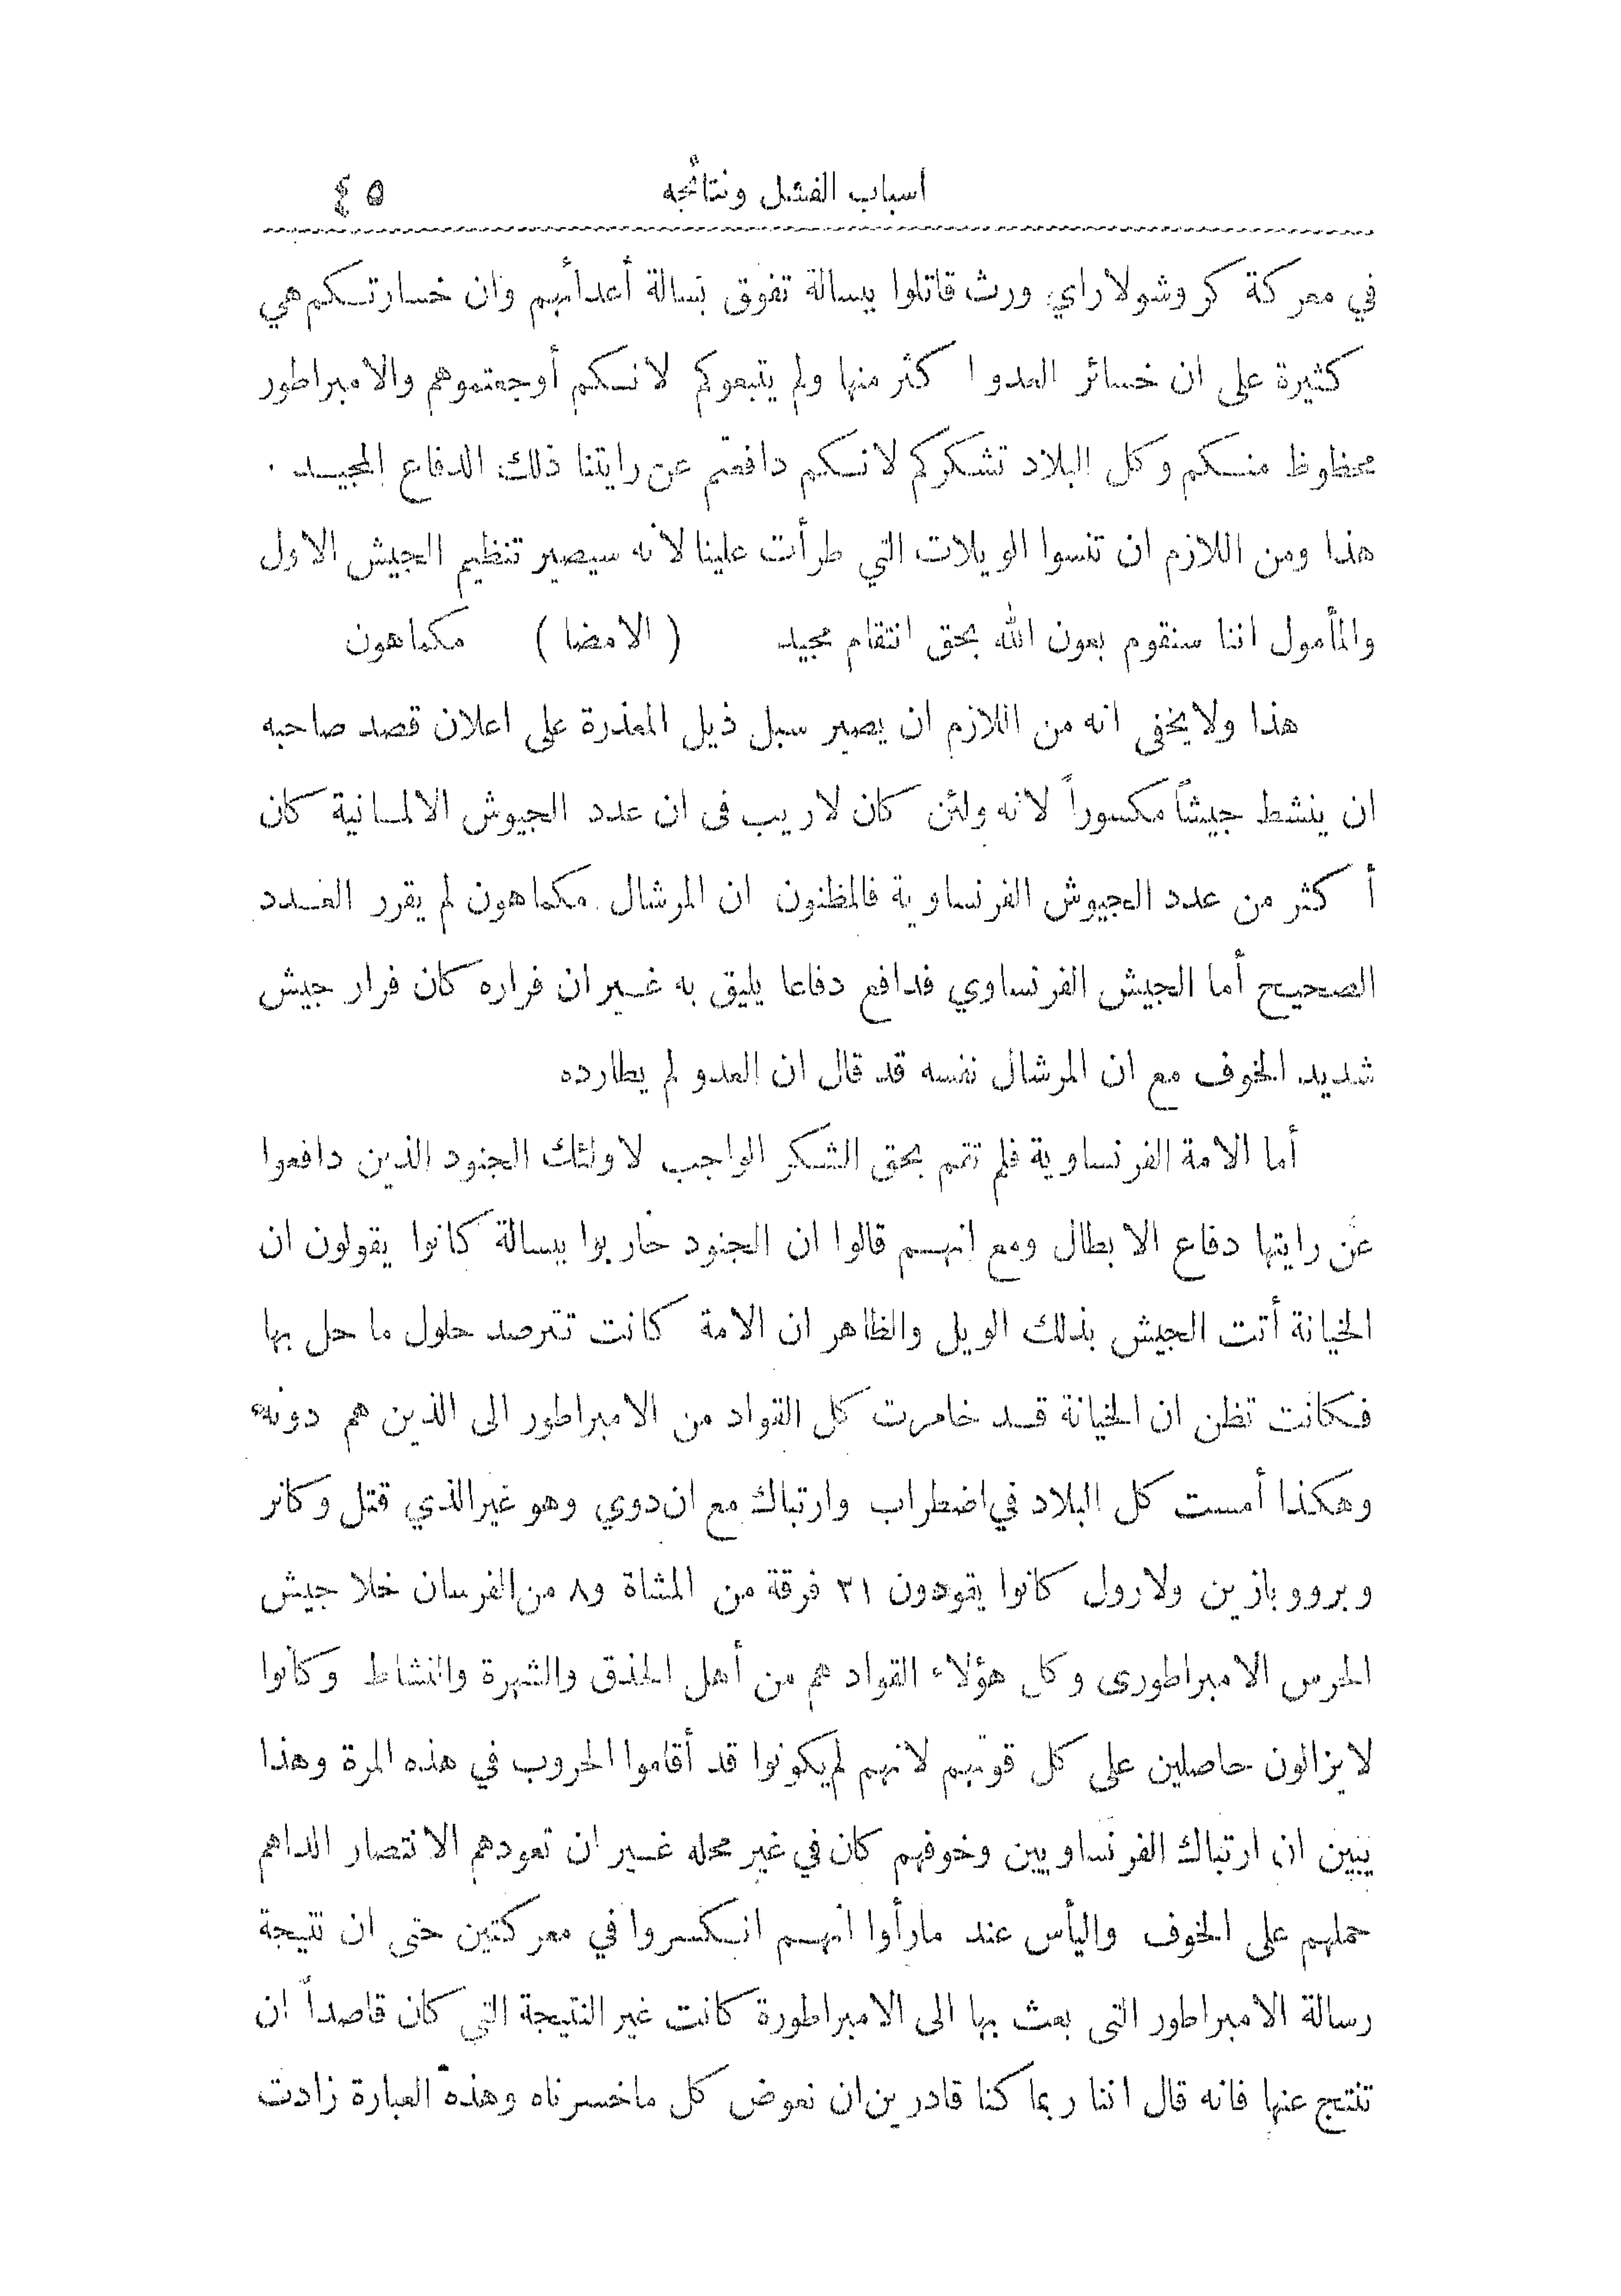 أسباب الفشل ونتائجه ٤٥
في معركة كروشولاراي ورث قاتلوا ببسالة تفوق بسالة أعدائهم وان خسارتكم هي
كثيرة على ان خسائر العدو اكثر منها ولم يتبعوكم لانكم أوجعتموهم والامبراطور
محظوظ منكم وكل البلاد تشكركم لانكم دافعتم عن رايتنا ذلك الدفاع المجيد .
هذا ومن اللازم ان تنسوا الويلات التي طرأت علينا لانه سيصير تنظيم الجيش الاول
والمأمول اننا سنقوم بعون الله بحق انتقام مجيد ( الامضا ) مكماهون
هذا ولا يخفى انه من اللازم ان يصير سبل ذيل المعذرة على اعلان قصد صاحبه
ان ينشط جيشاً مكسوراً لانه ولئن كان لاريب فى ان عدد الجيوش الالمانية كان
أكثر من عدد الجيوش الفرنساوية فالمظنون ان المرشال مكماهون لم يقرر العدد
الصحيح أما الجيش الفرنساوي فدافع دفاعا يليق به غير ان فراره كان فرار جيش
شديد الخوف مع ان المرشال نفسه قد قال ان العدو لم يطارده
أما الامة الفرنساوية فلم تقم بحق الشكر الواجب لاولئك الجنود الذين دافعوا
عن رايتها دفاع الابطال ومع انهم قالوا ان الجنود حاربوا ببسالة كانوا يقولون ان
الخيانة أتت الجيش بذلك الويل والظاهر ان الامة كانت تترصد حلول ما حل بها
فكانت تظن ان الخيانة قد خامرت كل القواد من الامبراطور الى الذين هم دونه
وهكذا أمست كل البلاد في اضطراب وارتباك مع ان دوي وهو غير الذي قتل وكانر
وبرووبازين ولارول كانوا يقودون ٣١ فرقة من المشاة و٨ من الفرسان خلا جيش
الحرس الامبراطورى وكل هؤلاء القواد هم من أهل الحذق والشهرة والنشاط وكانوا
لا يزالون حاصلين على كل قوتهم لانهم لم يكونوا قد أقاموا الحروب في هذه المرة وهذا
يبين ان ارتباك الفرنساويين وخوفهم كان في غير محله غير ان تعودهم الانتصار الداهم
حملهم على الخوف واليأس عند مارأوا انهم انكسروا في معركتين حتى ان نتيجة
رسالة الامبراطور التى بعث بها الى الامبراطورة كانت غير النتيجة التي كان قاصداً ان
تنتج عنها فانه قال اننا ربما كنا قادرين ان نعوض كل ماخسرناه وهذه العبارة زادت